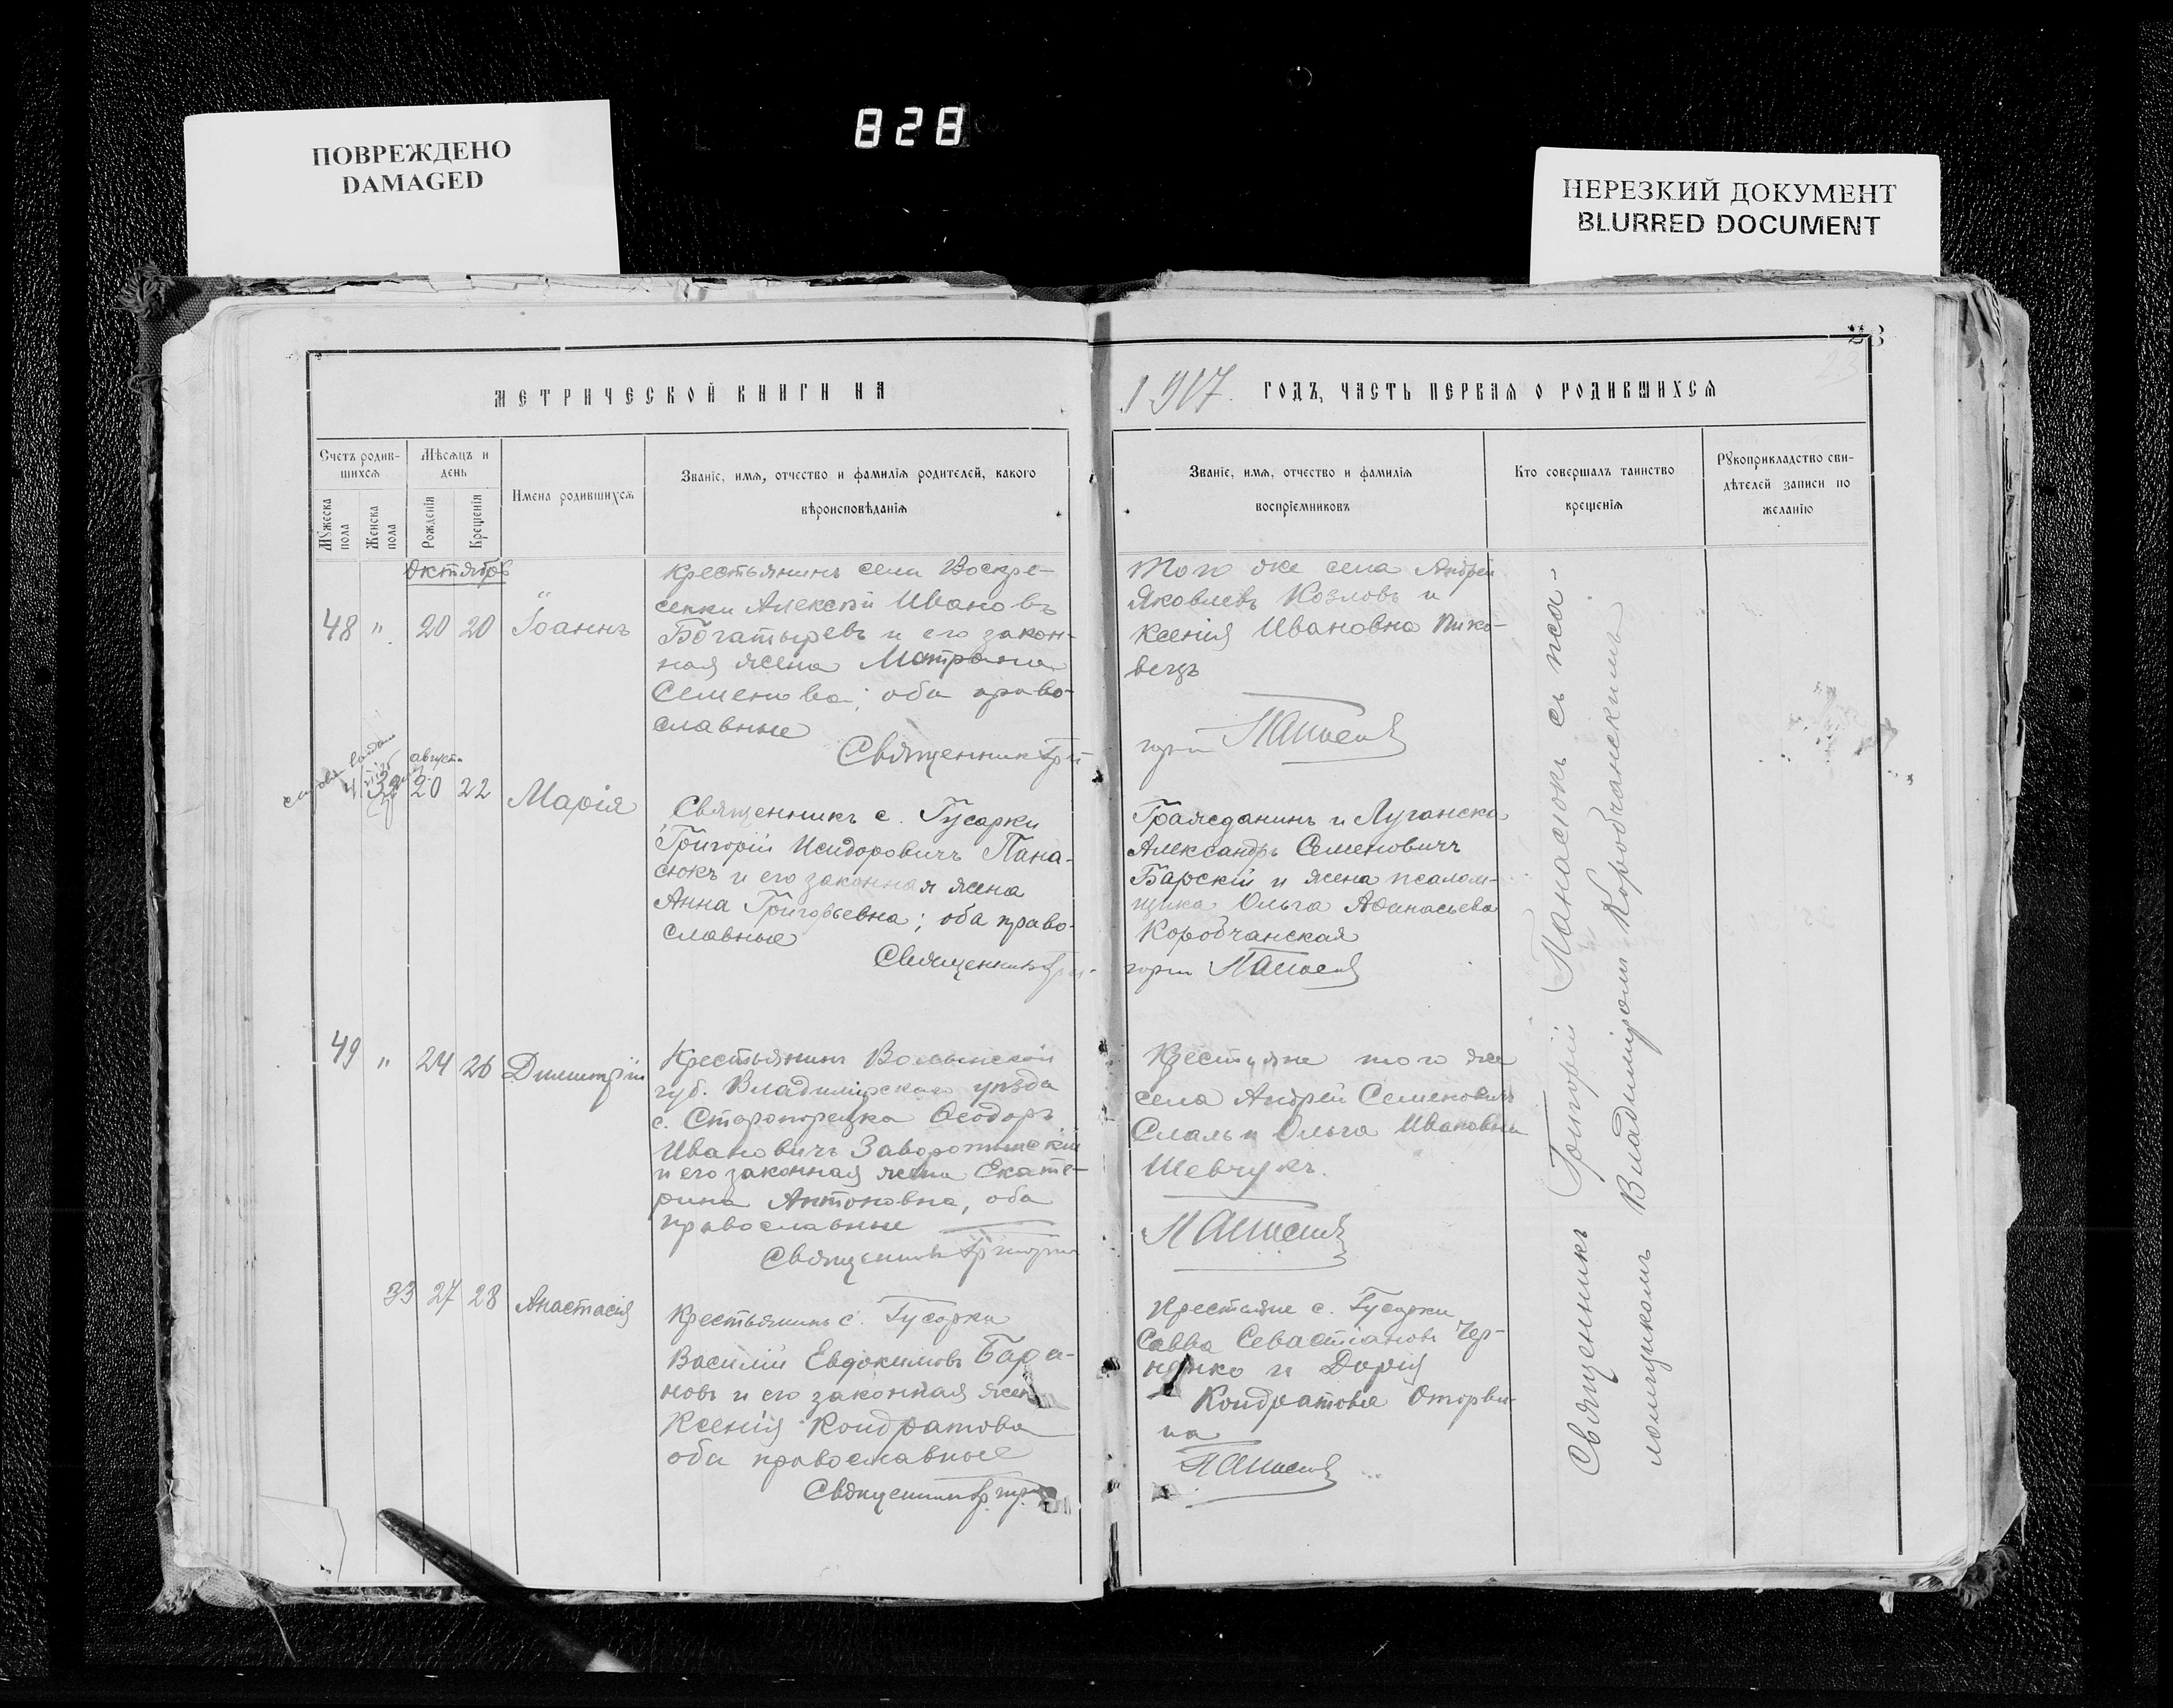 ПОВРЕЖДЕНО
DAMAGED
828
НЕРЕЗКИЙ ДОКУМЕНТ
BLURRED DOCUMENT
23
МЕТРИЧЕСКОЙ КНИГИ НА
1917 ГОДЪ, ЧАСТЬ ПЕРВАЯ О РОДИВШИХСЯ
Счетъ родив-
шихся
Мужеска
пола
Женска
пола
Мѣсяцъ и
день
Рожденія
Крещенія
Имена родившихся
Званіе, имя, отчество и фамилія родителей, какого
вѣроисповѣданія
Званіе, имя, отчество и фамилія
воспріемниковъ
Кто совершалъ таинство
крещенія
Рукоприкладство сви-
дѣтелей записи по
желанію
Октябрь
48 " 20 20 Іоаннъ
Крестьянинъ села Воскре-
сенки Алексѣй Ивановъ
Богатыревъ и его закон-
ная жена Матрона
Семенова; оба право-
славные
Священник Гри
Того же села Андрей
Яковлевъ Козловъ и
Ксенія Ивановна
вецъ
горій
августа
32 20 22 Марія
Священникъ с. Гусарки
Григорій Исидоровичъ Пана-
сюкъ и его законная жена
Анна Григорьевна; оба право-
славные
Священникъ Гри-
Гражданинъ г. Луганска
Александръ Семеновичъ
Барскій и жена псалом-
щика Ольга Афанасьева
Коробчанская
горій
49 " 24 26 Димитрій
Крестьянинъ Волынской
губ. Владимірскаго уѣзда
с. Ѳеодоръ
Ивановичъ
и его законная жена Екате-
рина Антоновна, оба
православные
Священник Григорій
Крестьяне того же
села Андрей Семеновичъ
и Ольга Ивановна
Шевчукъ.
33 27 28 Анастасія
Крестьянинъ с. Гусарки
Василій Евдокимовъ Бара-
новъ и его законная жена
Ксенія Кондратова
оба православные
Священник Григорій
Крестьяне с. Гусарки
Савва Севастіановъ Чер-
ненко и Дарія
Кондратова
на
Священникъ Григорій Панасюкъ съ пса-
ломщикомъ Владиміромъ Коробчанскимъ